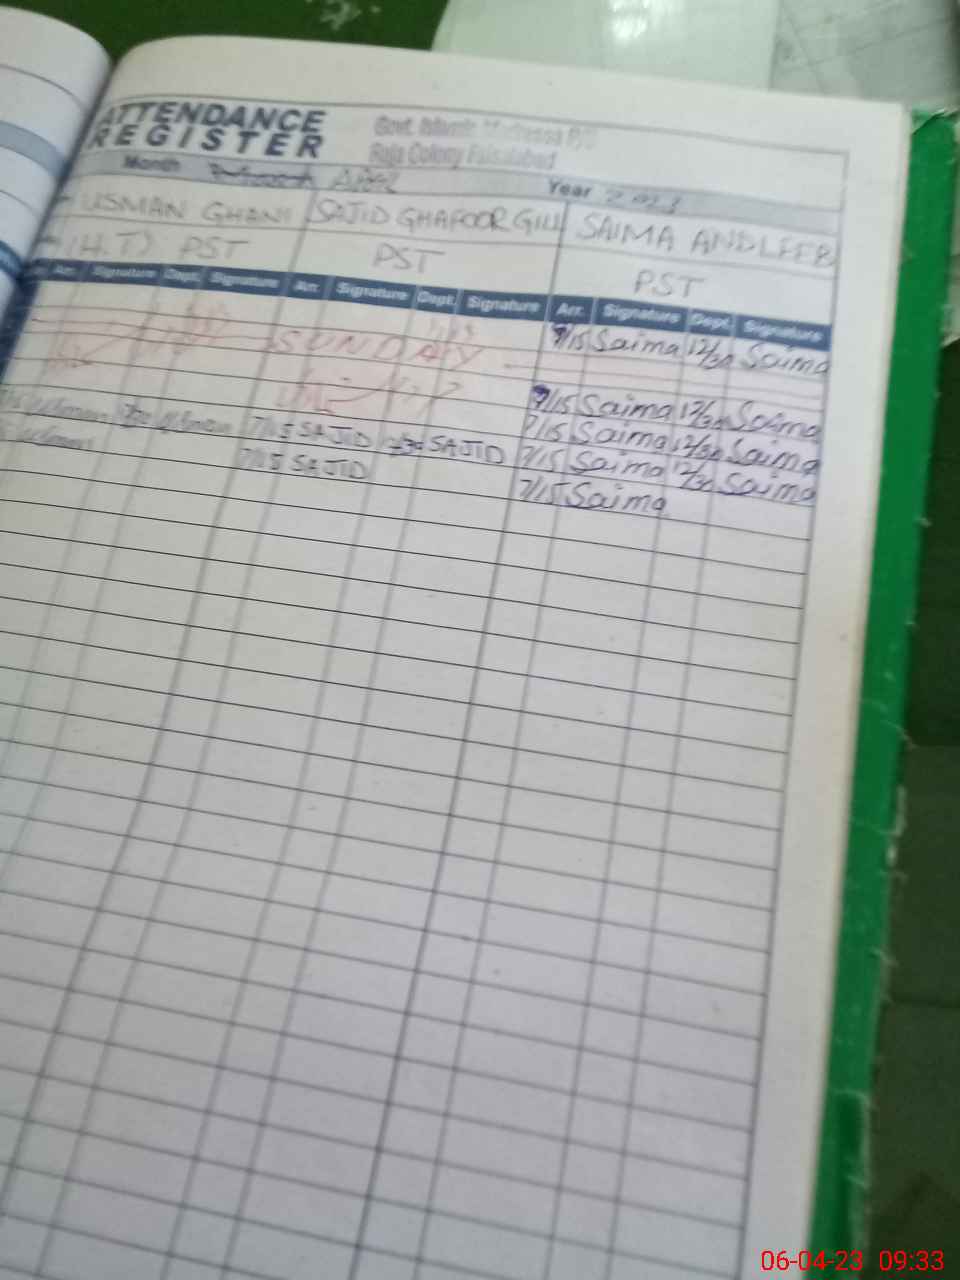 ATTENDANCE
REGISTER
Govt. Islamia Madrassa P/S
Raja Colony Faisalabad
Month APRIL Year 2023
USMAN GHANI SAJID GHAFOOR GILL SAIMA ANDLEEB
(H.T) PST PST PST
Arr. Signature Dept. Signature Arr. Signature Dept. Signature Arr. Signature Dept. Signature
7/15 Saima 12/30 Saima
SUNDAY
7/15 Saima 12/30 Saima
7/15 Saima 12/30 Saima
Usman Usman 7/15 SAJID 12/30 SAJID 7/15 Saima 12/30 Saima
Usman 7/15 SAJID 7/15 Saima
06-04-23 09:33